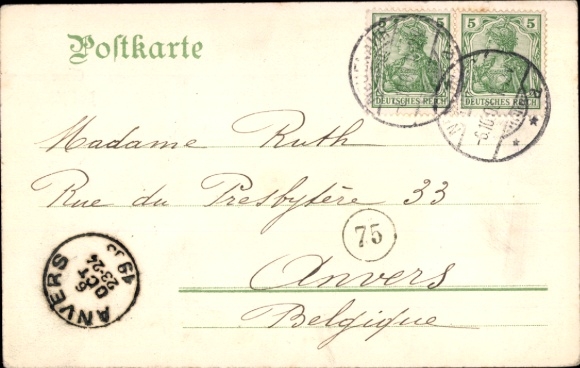 Postkarte
5 5 5
DEUTSCHES REICH DEUTSCHES REICH
Madame Ruth
Rue du Presbytère 33
75
Anvers
Belgique
ANVERS
6
OCT
23-24
19